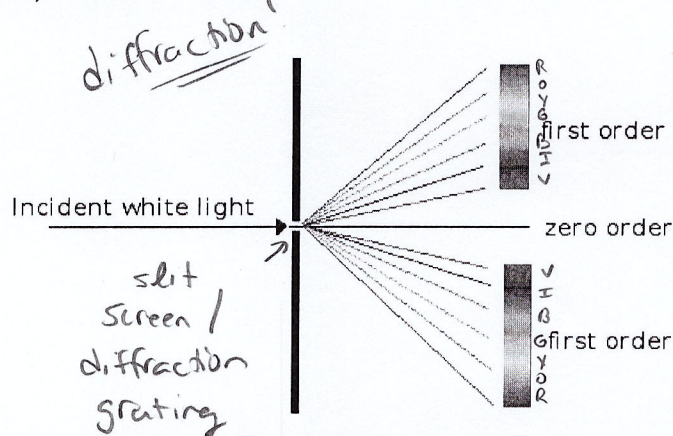 diffraction
R
O
Y
G
B
I
V
first order
Incident white light
zero order
slit
screen /
diffraction
grating
V
I
B
G
Y
O
R
first order